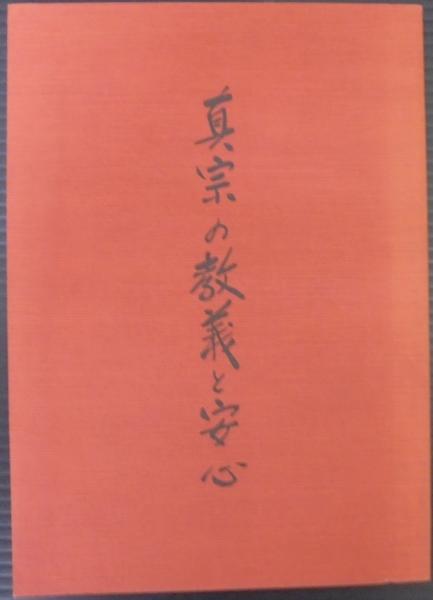 真宗の教義と安心